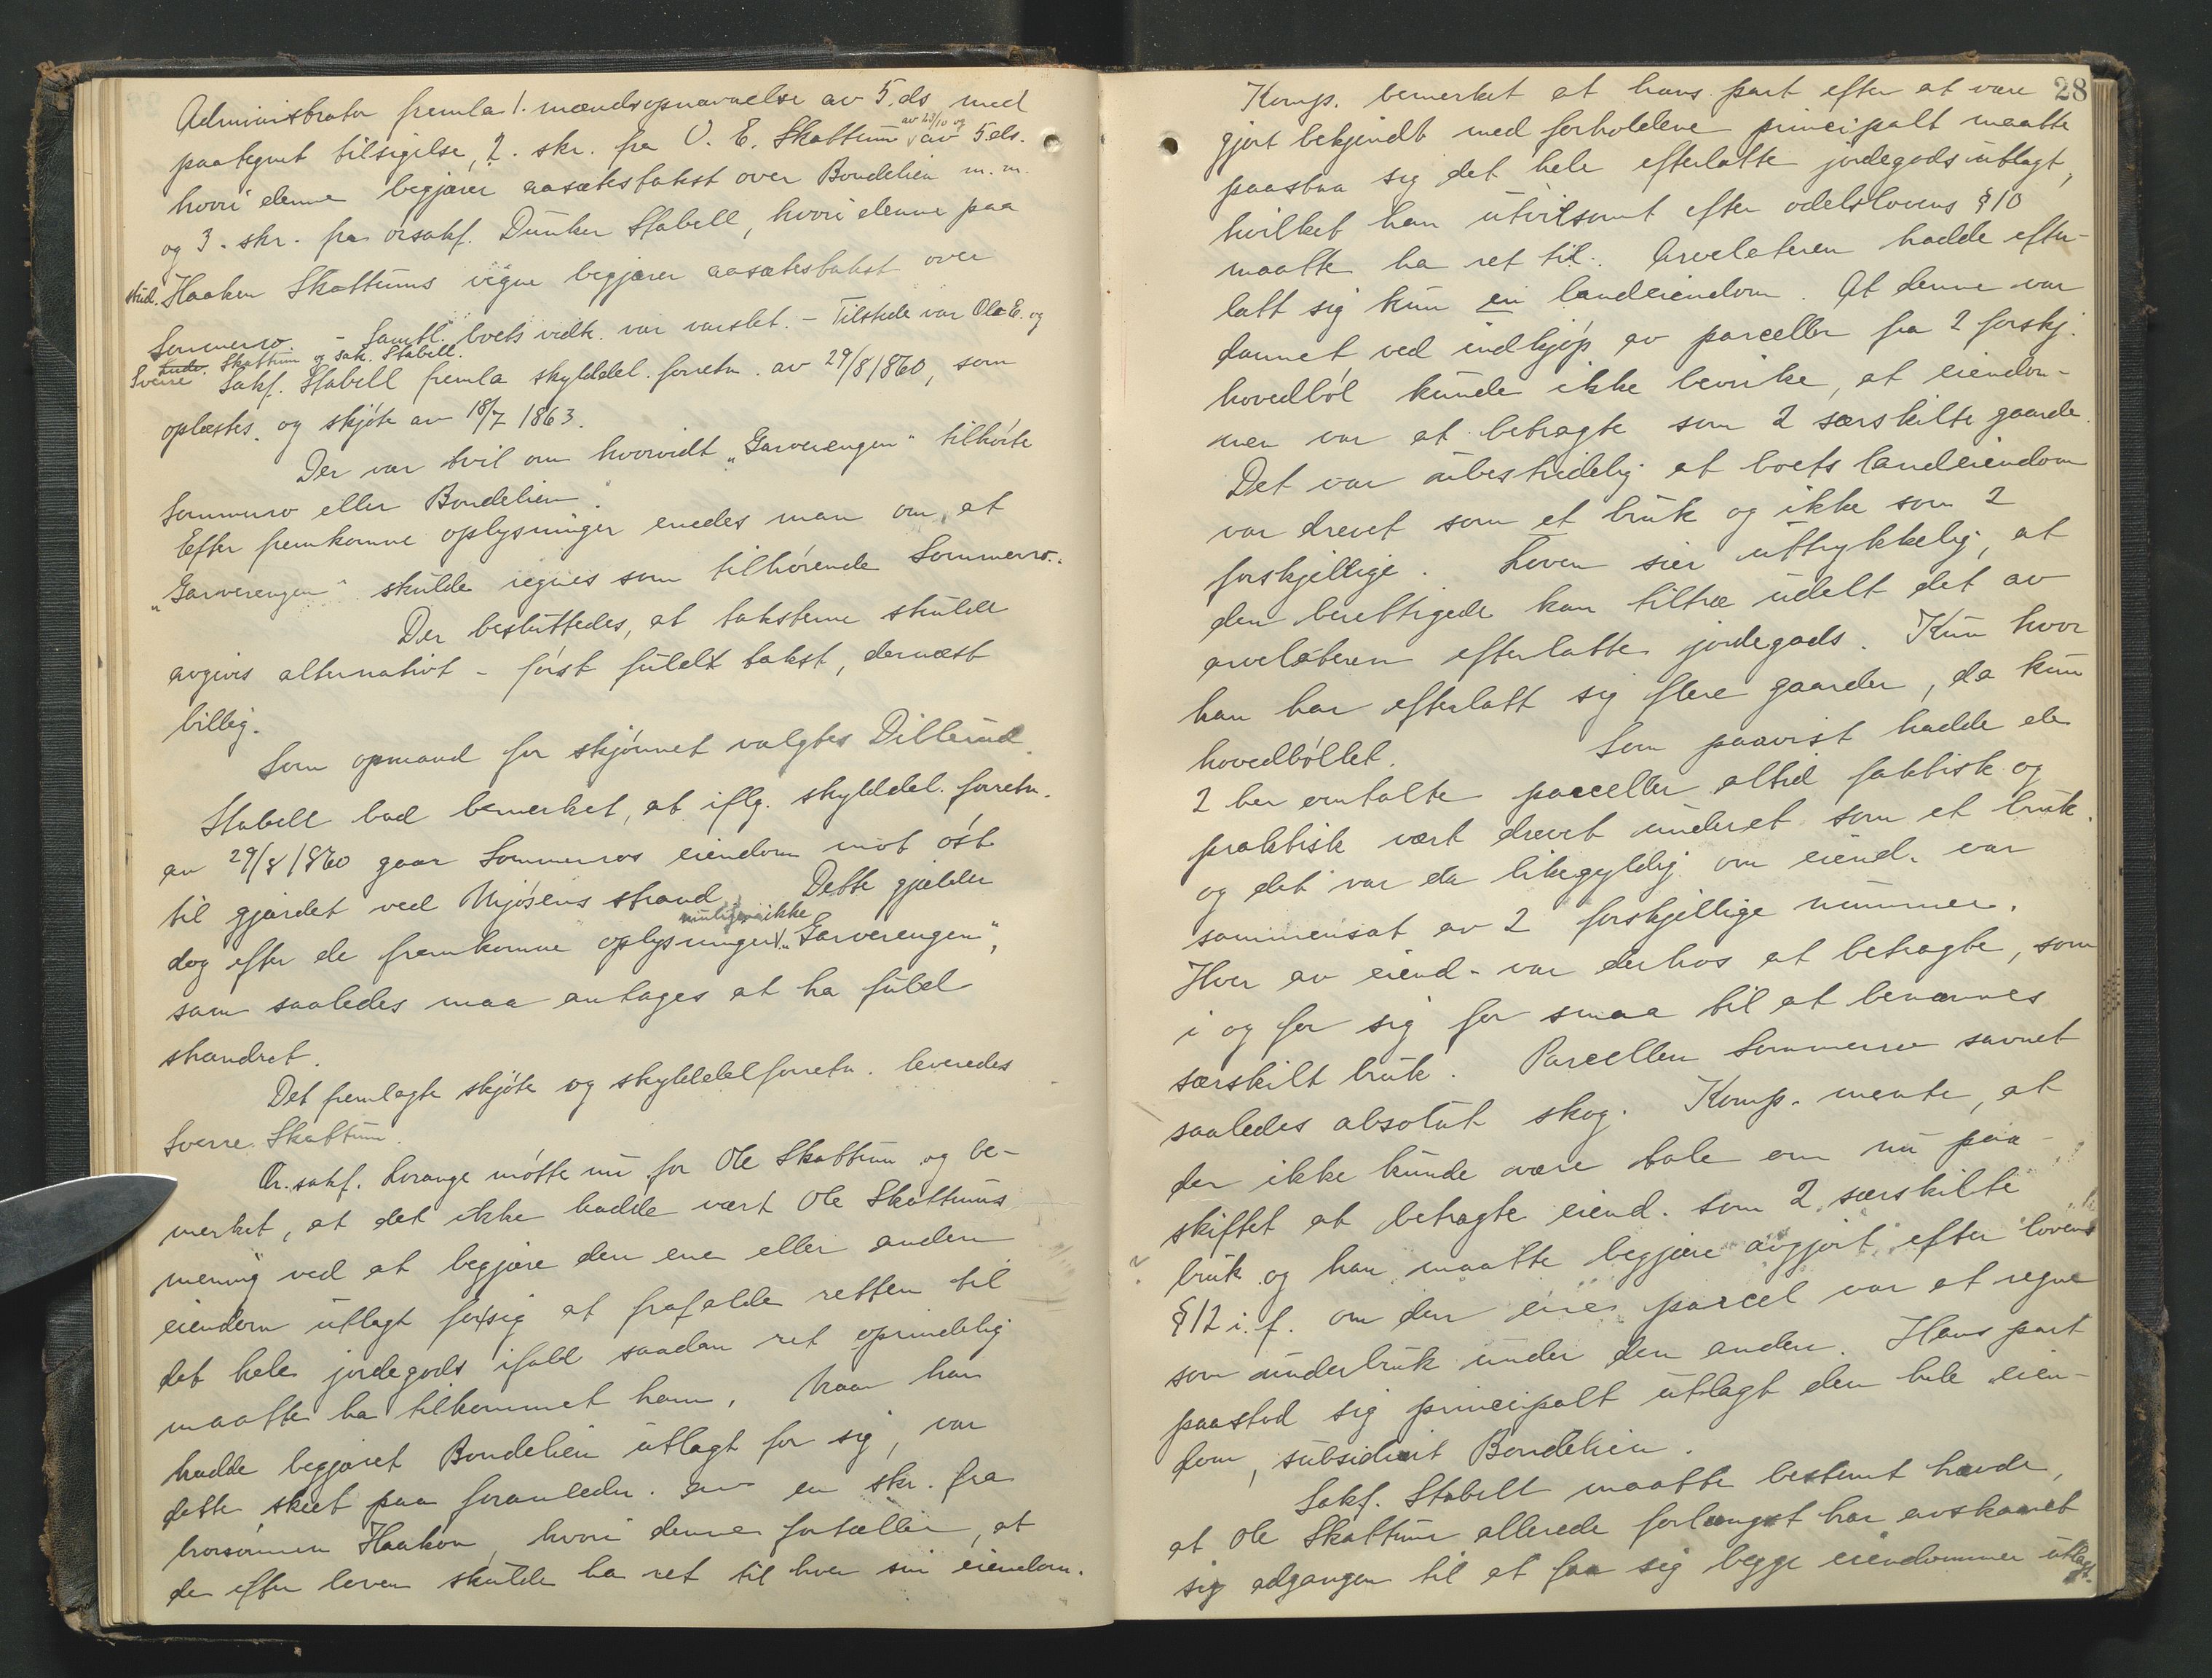 Administrator fremla 1. mændsopnævnelse av 5. ds med
paategnet tilsigelse, 2. skr. fra O. E. Skattum av 23/10 og av 5 ds.
hvori denne begjærer aasætestakst over Bondelien m.m.
og 3. skr. fra orsakf. Dunker Stabell, hvori denne paa
stud. Haaken Skattums vegne begjærer aasætestakst over
Sommerro. - Samtl. boets vidk. var varslet. - Tilstede var Ole E. og
Sverre Skattum og sak. Stabell.
Sakf. Stabell fremla skylddel. forretn. av 29/8 1860, som
oplæstes og skjøte av 18/7 1863.
Der var tvil om hvorvidt "Garverengen" tilhørte
Sommerro eller Bondelien.
Efter fremkomne oplysninger enedes man om, at
"Garverengen" skulde regnes som tilhørende Sommerro.
Der besluttedes, at taksterne skulde
avgives alternativt - først fuld takst, dernæst
billig.
Som opmand for skjønnet valgtes Dillerud.
Stabell bad bemerket, at iflg. skylddel. forretn.
av 29/8 1860 gaar Sommerros eiendom mot øst
til gjærdet ved Mjøsens strand. Dette gjælder
muligens ikke
dog efter de fremkomne oplysninger "Garverengen",
som saaledes maa antages at ha fuld
strandret.
Det fremlagte skjøte og skylddelforretn. leveredes
Sverre Skattum.
Or.sakf. Lorange møtte nu for Ole Skattum og be-
merket, at det ikke hadde vært Ole Skattums
mening ved at begjære den ene eller anden
eiendom utlagt for sig at frafalde retten til
det hele jordegods ifald saadan ret oprindelig
maatte ha tilkommet ham. Naar han
hadde begjæret Bondelien utlagt for sig, var
dette skeet paa foranledn. av en skr. fra
brorsønnen Haakon, hvori denne fortæller, at
de efter loven skulde ha ret til hver sin eiendom.
28
Komp. bemerket at hans part efter at være
gjort bekjendt med forholdene principalt maatte
paastaa sig det hele efterlatte jordegods utlagt,
hvilket han utvilsomt efter odelslovens § 10
maatte ha ret til. Arvelateren hadde efter-
latt sig kun en landeiendom. At denne var
dannet ved indkjøp av parceller fra 2 forskj.
hovedbøl kunde ikke bevirke, at eiendom-
men var at betragte som 2 særskilte gaarde.
Det var ubestridelig at boets landeiendom
var drevet som et bruk og ikke som 2
forskjellige. Loven sier uttrykkelig, at
den berettigede kan tiltræ udelt det av
arvelateren efterlatte jordegods. Kun hvor
han har efterlatt sig flere gaarder, da kun
hovedbøllet. Som paavist hadde de
2 her omtalte parceller altid faktisk og
praktisk vært drevet underet som et bruk.
og det var da likegyldig om eiend. var
sammensat av 2 forskjellige nummer.
Hver av eiend. var derhos at betragte, som
i og for sig for smaa til at benævnes
særskilt bruk. Parcellen Sommerro savnet
saaledes absolut skog. Komp. mente, at
der ikke kunde være tale om nu paa
skiftet at betragte eiend. som 2 særskilte
bruk og han maatte begjære avgjort efter lovens
§ 12 i. f. om den ene parcel var at regne
som underbruk under den anden. Hans part
paastod sig principalt utlagt den hele eien-
dom, subsidiært Bondelien.
Sakf. Stabell maatte bestemt hævde,
at Ole Skattum allerede forlængst har avskaaret
sig adgangen til at faa sig begge eiendommer utlagt.